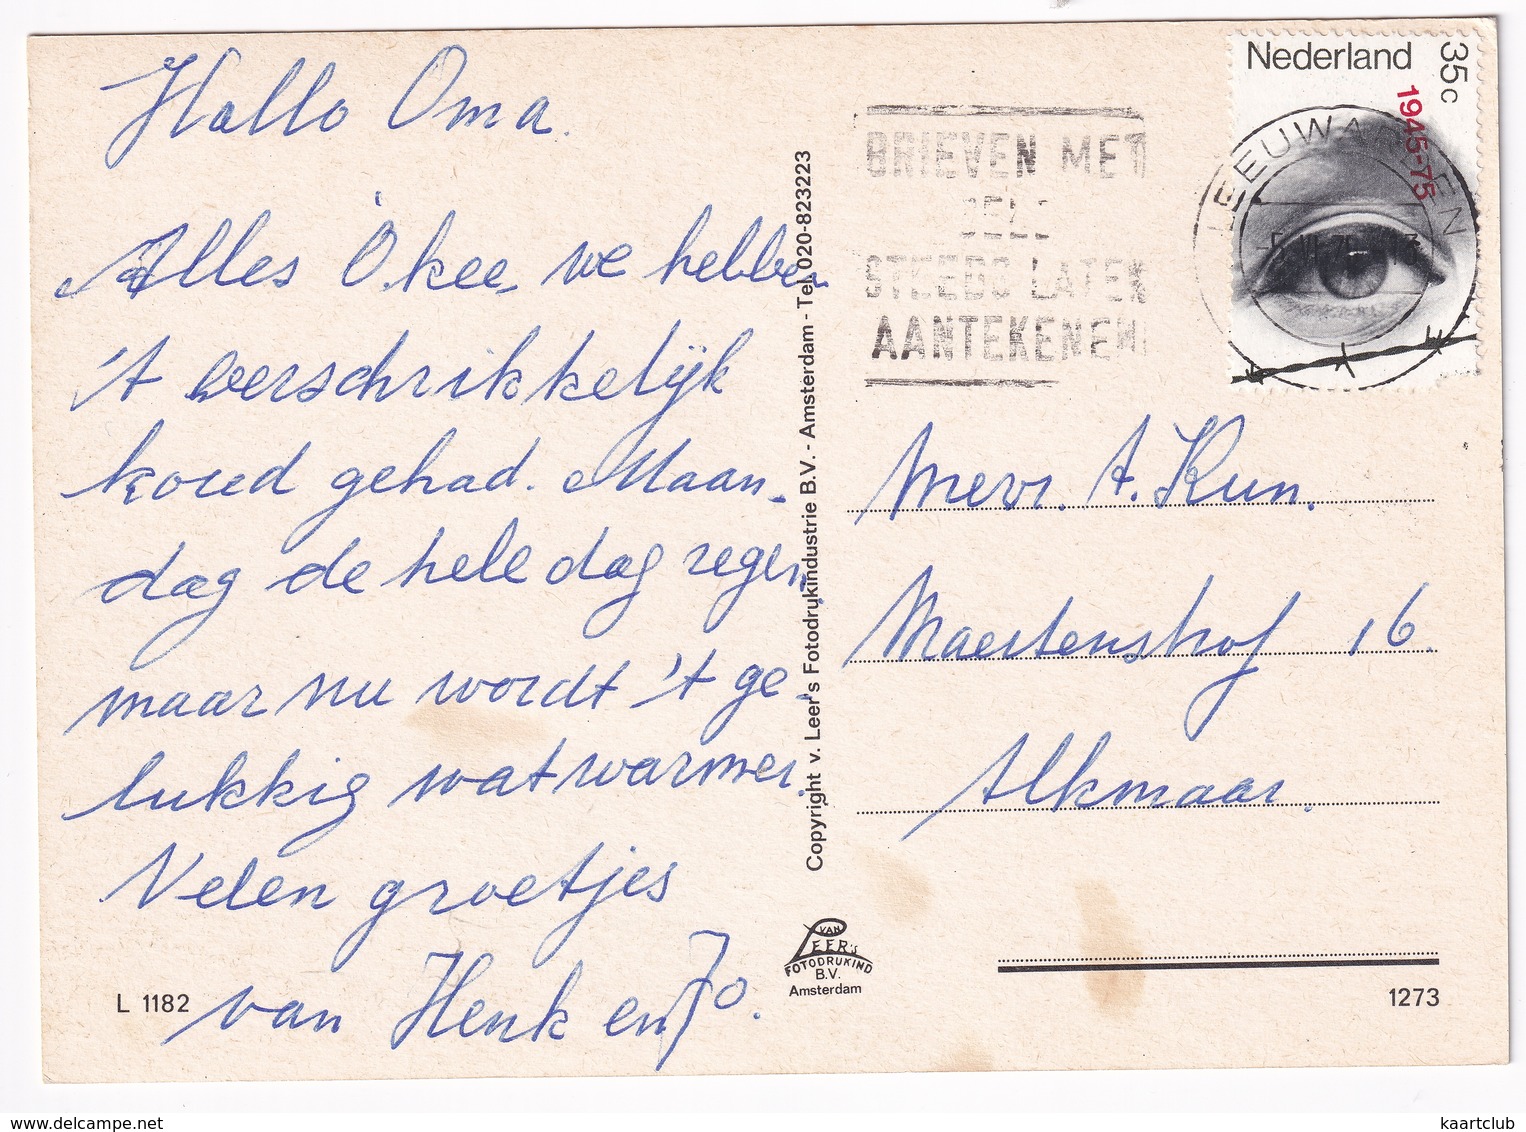 Hallo Oma.
Alles O.kee, we hebben
't verschrikkelijk
koud gehad. Maan-
dag de hele dag regen,
maar nu wordt 't ge-
lukkig wat warmer.
Velen groetjes
van Henk en Jo.
L 1182
Copyright v. Leer's Fotodrukindustrie B.V. - Amsterdam - Tel. 020-823223
VAN
LEER's
FOTODRUKIND
B.V.
Amsterdam
BRIEVEN MET
GELD
STEEDS LATEN
AANTEKENEN
Nederland
35c
1945-75
LEEUWARDEN
Mevr. A. Kun.
Maertenshof 16.
Alkmaar.
1273
http://www.delcampe.net
kaartclub